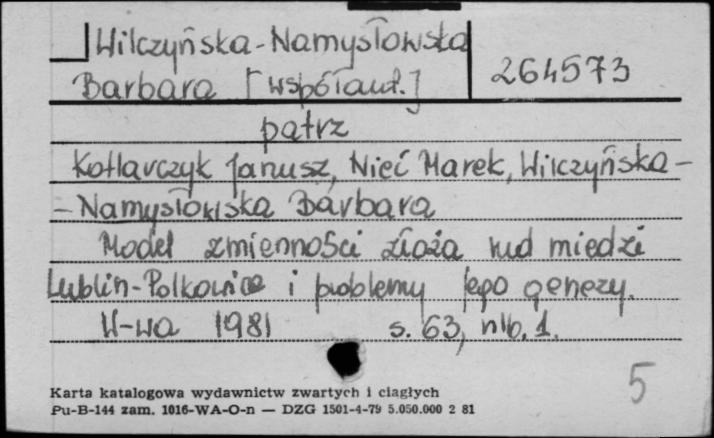 Wilczyńska-Namysłowska
Barbara [współaut.] 264573
patrz
Kotlarczyk Janusz, Nieć Marek, Wilczyńska-
-Namysłowska Barbara
Model zmienności złoża rud miedzi
Lublin-Polkowice i problemy jego genezy.
W-wa 1981 s. 63, nlb. 1.
5
Karta katalogowa wydawnictw zwartych i ciągłych
Pu-B-144 zam. 1016-WA-O-n — DZG 1501-4-79 5.050.000 2 81